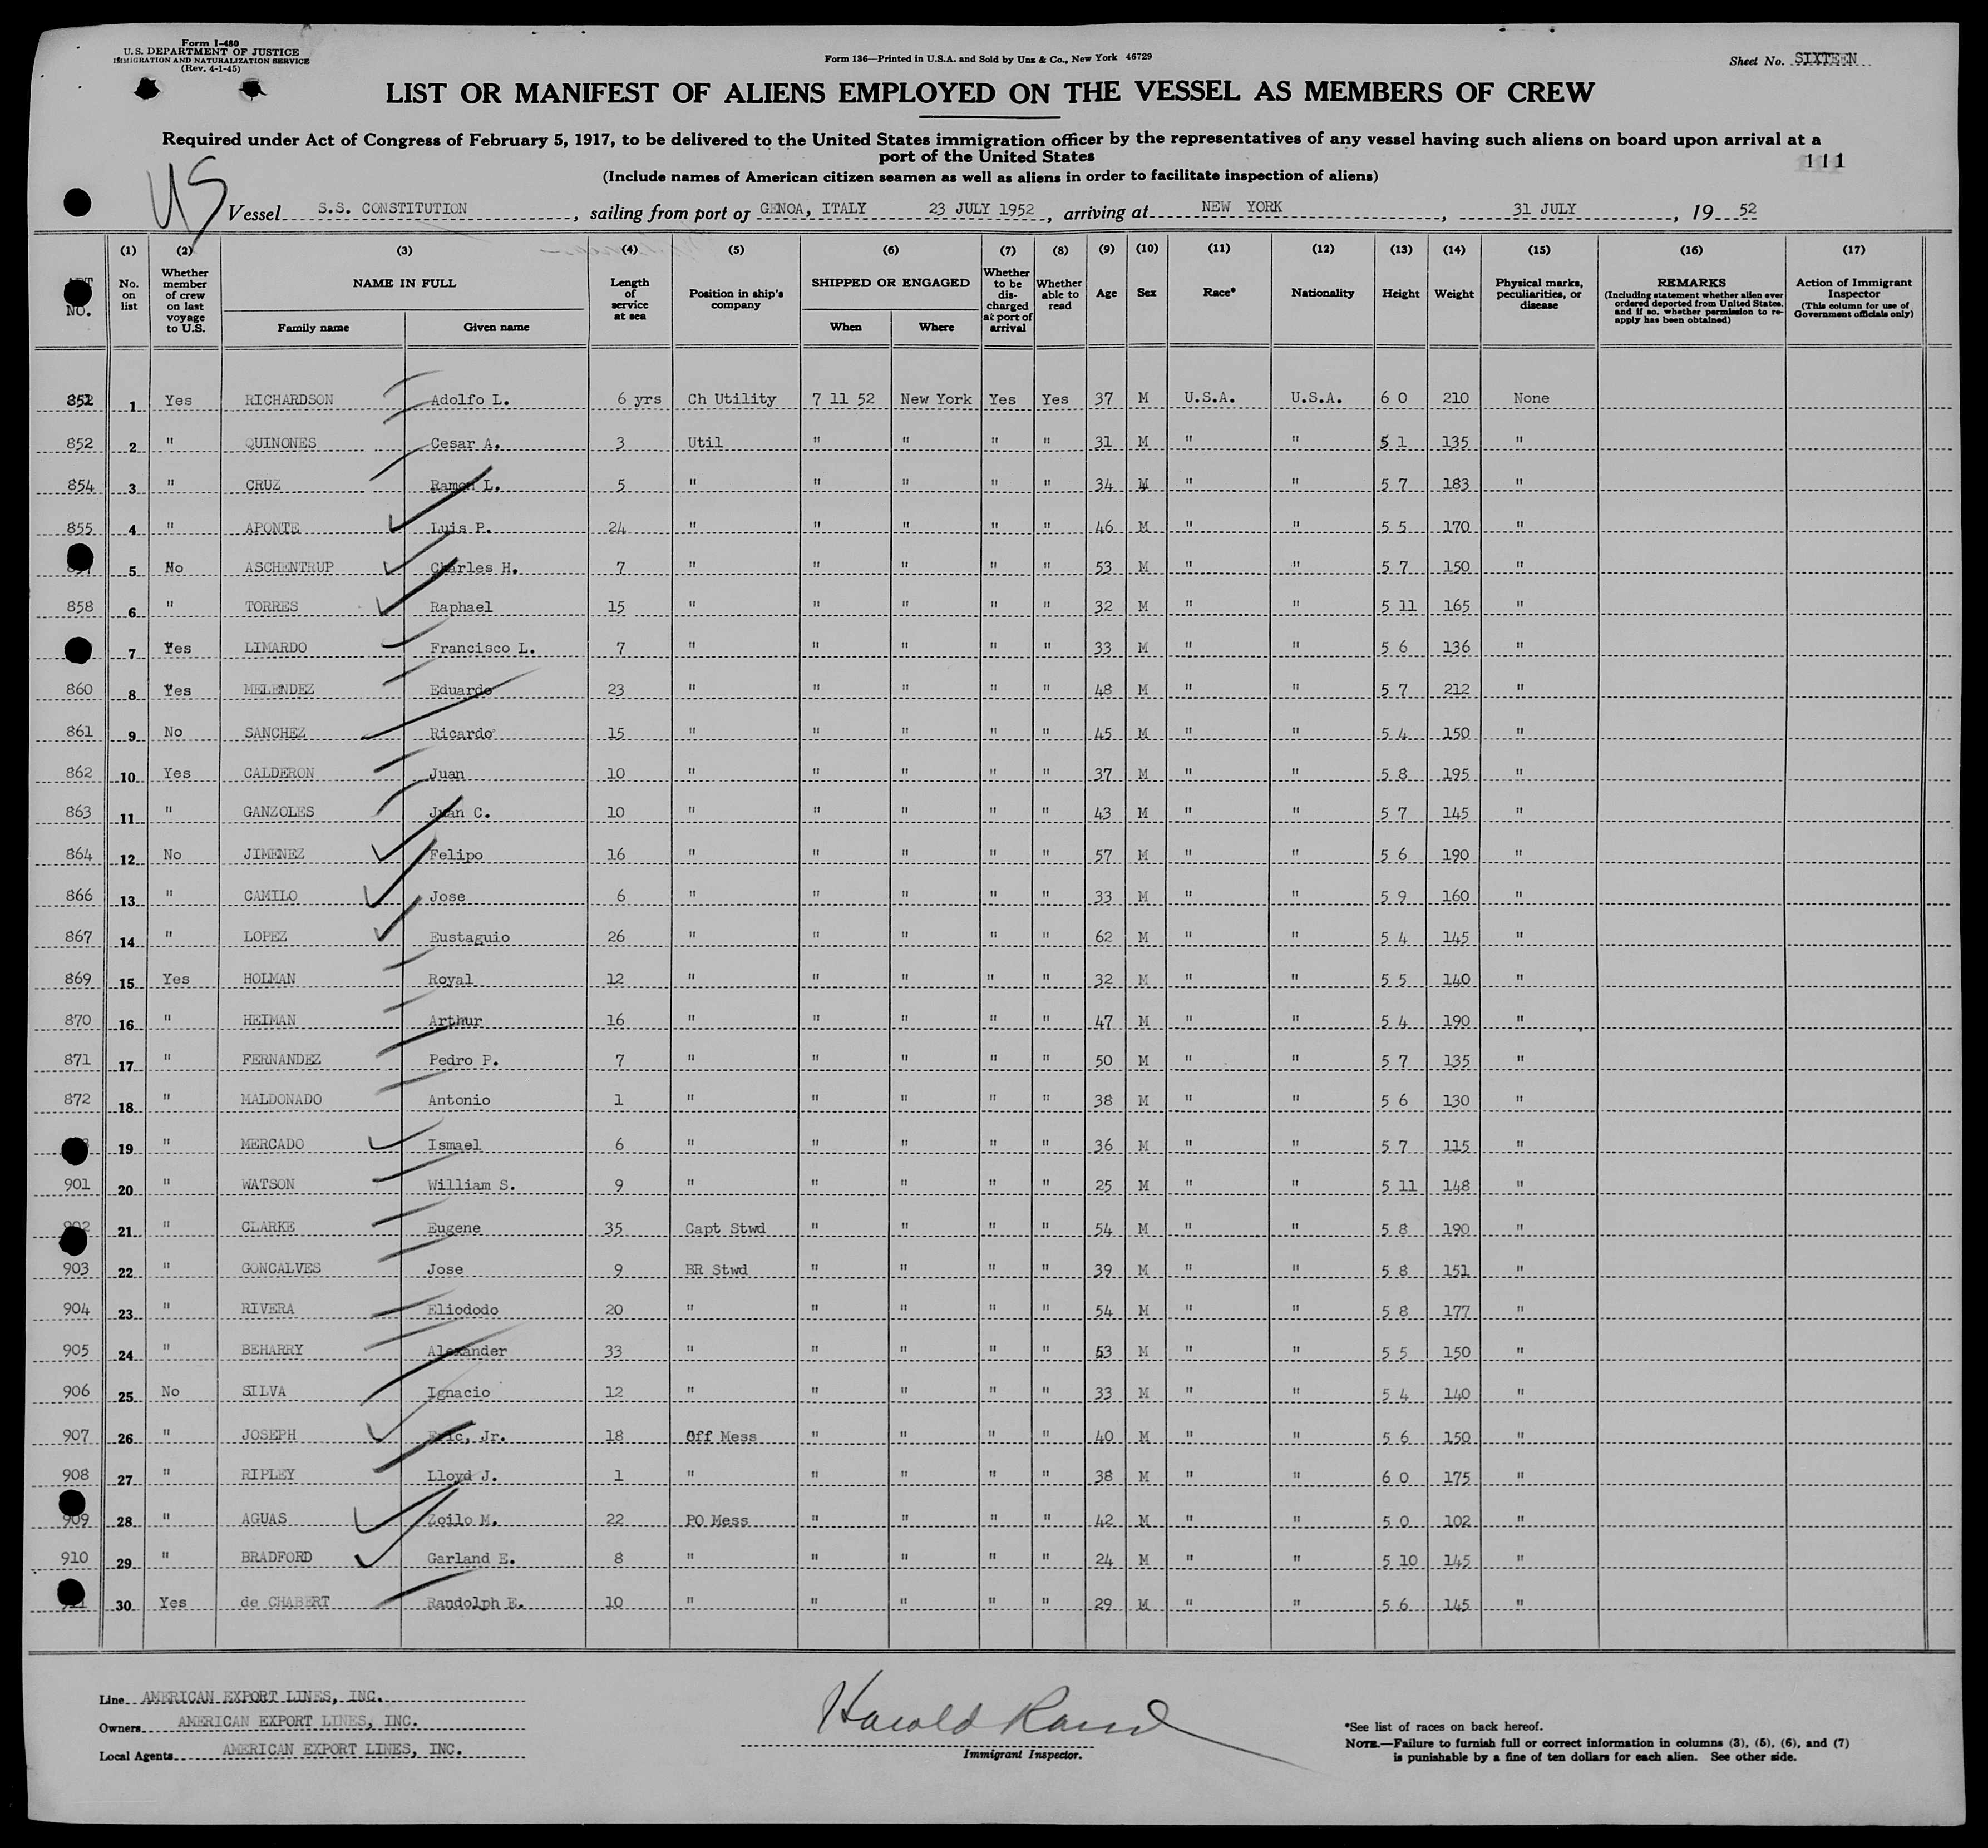 Form I-480
U.S. DEPARTMENT OF JUSTICE
IMMIGRATION AND NATURALIZATION SERVICE
(Rev. 4-1-45)
Form 136—Printed in U.S.A. and Sold by Unz & Co., New York 46729
Sheet No. SIXTEEN
LIST OR MANIFEST OF ALIENS EMPLOYED ON THE VESSEL AS MEMBERS OF CREW
Required under Act of Congress of February 5, 1917, to be delivered to the United States immigration officer by the representatives of any vessel having such aliens on board upon arrival at a
port of the United States
111
(Include names of American citizen seamen as well as aliens in order to facilitate inspection of aliens)
US
Vessel S.S. CONSTITUTION, sailing from port of GENOA, ITALY 23 JULY 1952, arriving at NEW YORK, 31 JULY, 19 52
(1) (2) (3) (4) (5) (6) (7) (8) (9) (10) (11) (12) (13) (14) (15) (16) (17)
NO. No. on list Whether member of crew on last voyage to U.S. NAME IN FULL Family name Given name Length of service at sea Position in ship's company SHIPPED OR ENGAGED When Where Whether to be discharged at port of arrival Whether able to read Age Sex Race* Nationality Height Weight Physical marks, peculiarities, or disease REMARKS (Including statement whether alien ever ordered deported from United States, and if so, whether permission to re-apply has been obtained) Action of Immigrant Inspector (This column for use of Government officials only)
1 Yes RICHARDSON Adolfo L. 6 yrs Ch Utility 7 11 52 New York Yes Yes 37 M U.S.A. U.S.A. 6 0 210 None
852 2 " QUINONES Cesar A. 3 Util " " " " 31 M " " 5 1 135 "
854 3 " CRUZ Ramon L. 5 " " " " " 34 M " " 5 7 183 "
855 4 " APONTE Luis P. 24 " " " " " 46 M " " 5 5 170 "
5 No ASCHENTRUP Charles H. 7 " " " " " 53 M " " 5 7 150 "
858 6 " TORRES Raphael 15 " " " " " 32 M " " 5 11 165 "
7 Yes LIMARDO Francisco L. 7 " " " " " 33 M " " 5 6 136 "
860 8 Yes MELENDEZ Eduardo 23 " " " " " 48 M " " 5 7 212 "
861 9 No SANCHEZ Ricardo 15 " " " " " 45 M " " 5 4 150 "
862 10 Yes CALDERON Juan 10 " " " " " 37 M " " 5 8 195 "
863 11 " GANZOLES Juan C. 10 " " " " " 43 M " " 5 7 145 "
864 12 No JIMENEZ Felipo 16 " " " " " 57 M " " 5 6 190 "
866 13 " CAMILO Jose 6 " " " " " 33 M " " 5 9 160 "
867 14 " LOPEZ Eustaguio 26 " " " " " 62 M " " 5 4 145 "
869 15 Yes HOLMAN Royal 12 " " " " " 32 M " " 5 5 140 "
870 16 " HEIMAN Arthur 16 " " " " " 47 M " " 5 4 190 "
871 17 " FERNANDEZ Pedro P. 7 " " " " " 50 M " " 5 7 135 "
872 18 " MALDONADO Antonio 1 " " " " " 38 M " " 5 6 130 "
19 " MERCADO Ismael 6 " " " " " 36 M " " 5 7 115 "
901 20 " WATSON William S. 9 " " " " " 25 M " " 5 11 148 "
902 21 " CLARKE Eugene 35 Capt Stwd " " " " 54 M " " 5 8 190 "
903 22 " GONCALVES Jose 9 BR Stwd " " " " 39 M " " 5 8 151 "
904 23 " RIVERA Eliododo 20 " " " " " 54 M " " 5 8 177 "
905 24 " BEHARRY Alexander 33 " " " " " 53 M " " 5 5 150 "
906 25 No SILVA Ignacio 12 " " " " " 33 M " " 5 4 140 "
907 26 " JOSEPH Eric, Jr. 18 Off Mess " " " " 40 M " " 5 6 150 "
908 27 " RIPLEY Lloyd J. 1 " " " " " 38 M " " 6 0 175 "
909 28 " AGUAS Zoilo M. 22 PO Mess " " " " 42 M " " 5 0 102 "
910 29 " BRADFORD Garland E. 8 " " " " " 24 M " " 5 10 145 "
30 Yes de CHABERT Randolph E. 10 " " " " " 29 M " " 5 6 145 "
Line AMERICAN EXPORT LINES, INC.
Owners AMERICAN EXPORT LINES, INC.
Local Agents AMERICAN EXPORT LINES, INC.
Harold Rand
Immigrant Inspector.
*See list of races on back hereof.
NOTE.—Failure to furnish full or correct information in columns (3), (5), (6), and (7)
is punishable by a fine of ten dollars for each alien. See other side.